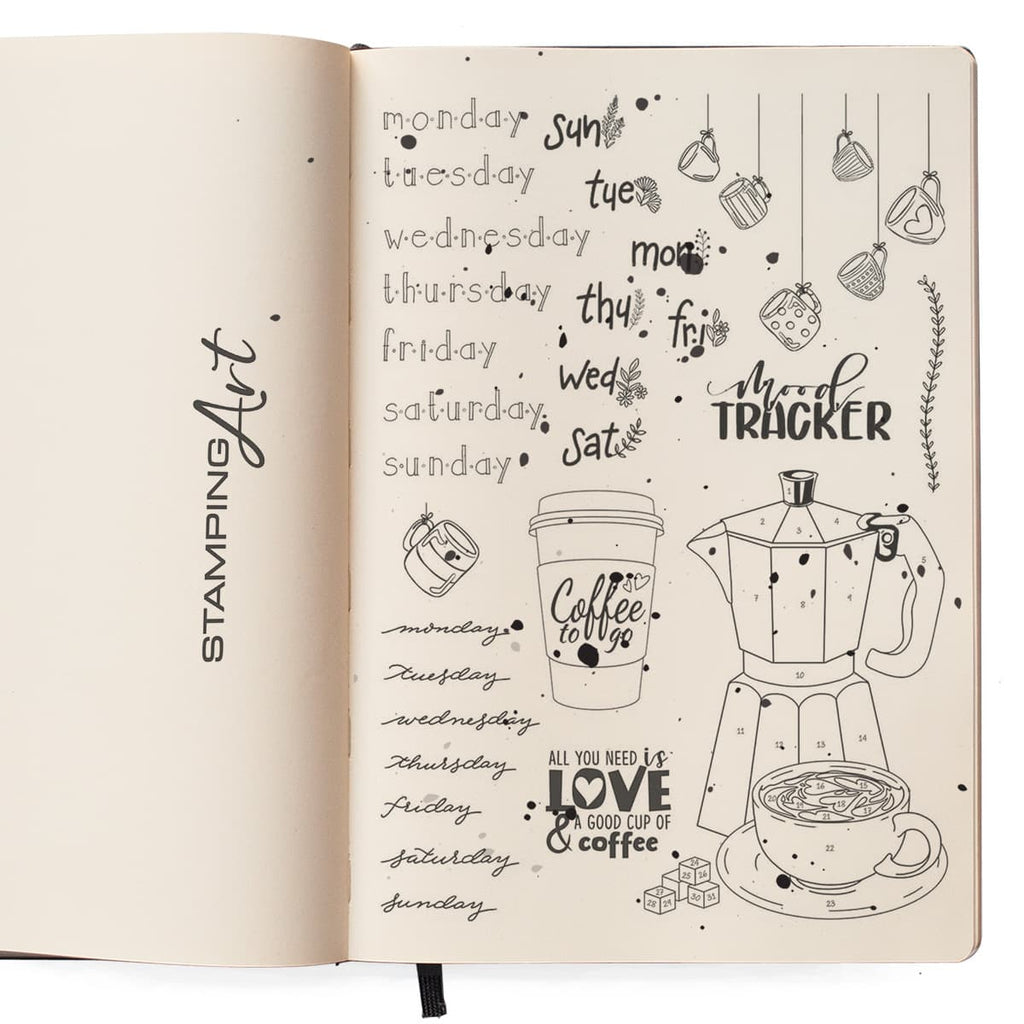 STAMPING Art
monday
tuesday
wednesday
thursday
friday
saturday
sunday
sun
tue
mon
thu
fri
wed
sat
mood
TRACKER
Coffee
to go
monday
tuesday
wednesday
thursday
friday
saturday
sunday
ALL YOU NEED is
LOVE
& A GOOD CUP OF
coffee
1
2
3
4
5
7
8
9
10
11
12
13
14
15
16
17
18
19
20
21
22
23
24
25
26
27
28
29
30
31